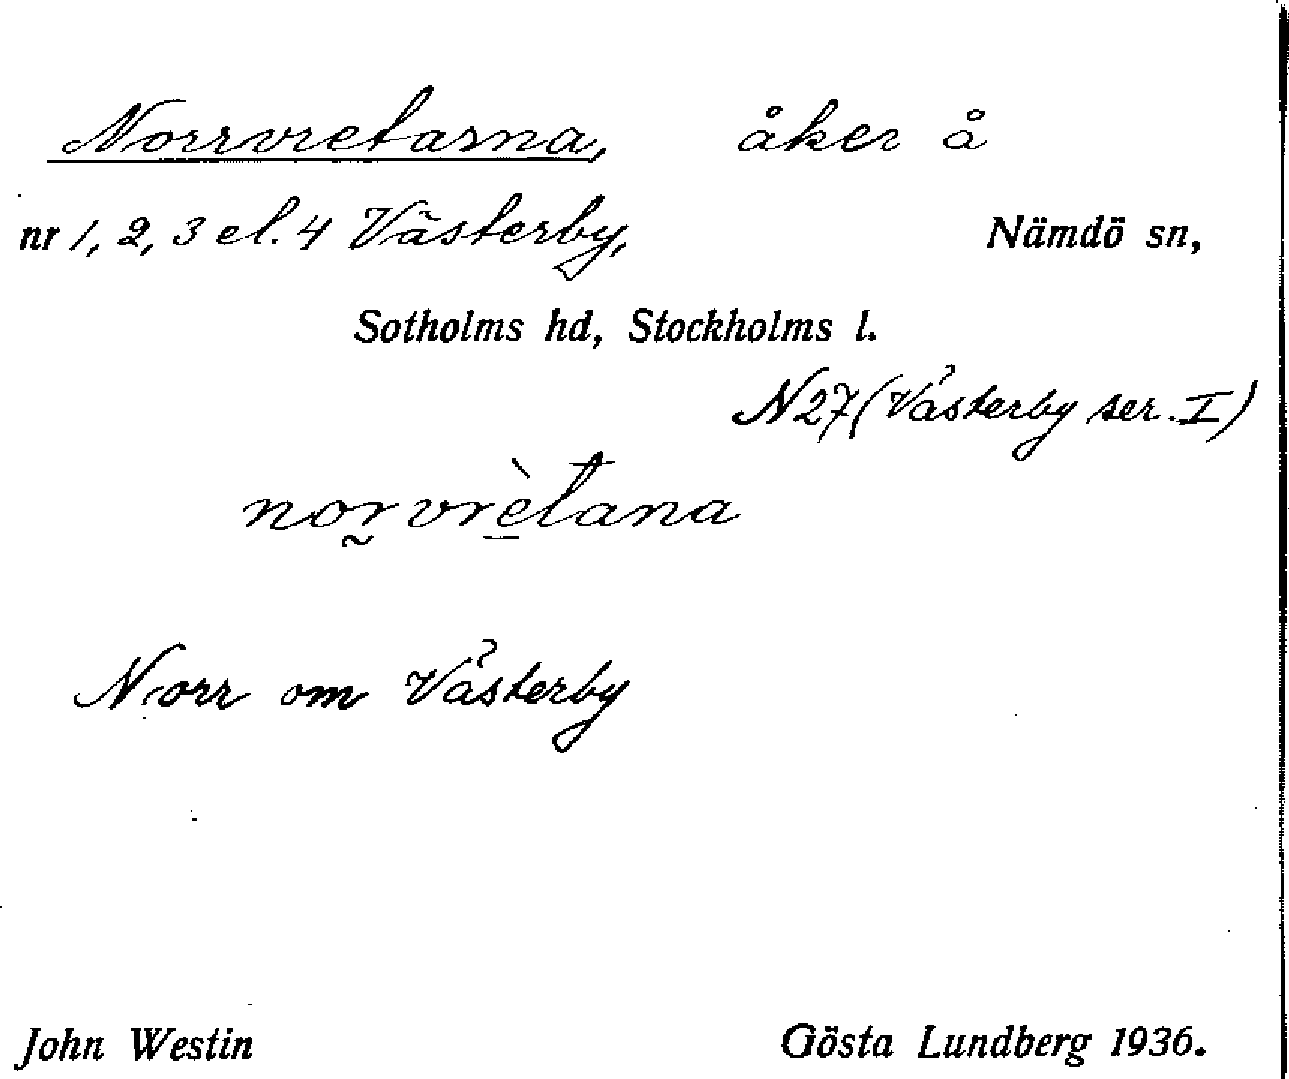 Norrvretarna, åker å
nr 1, 2, 3 el. 4 Västerby, Nämdö sn,
Sotholms hd, Stockholms l.
N27 (Västerby ser. I)
nor̰vrètana
Norr om Västerby
John Westin Gösta Lundberg 1936.